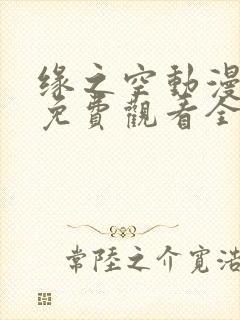 缘之空動漫
免費觀看全
常陸之介寬浩